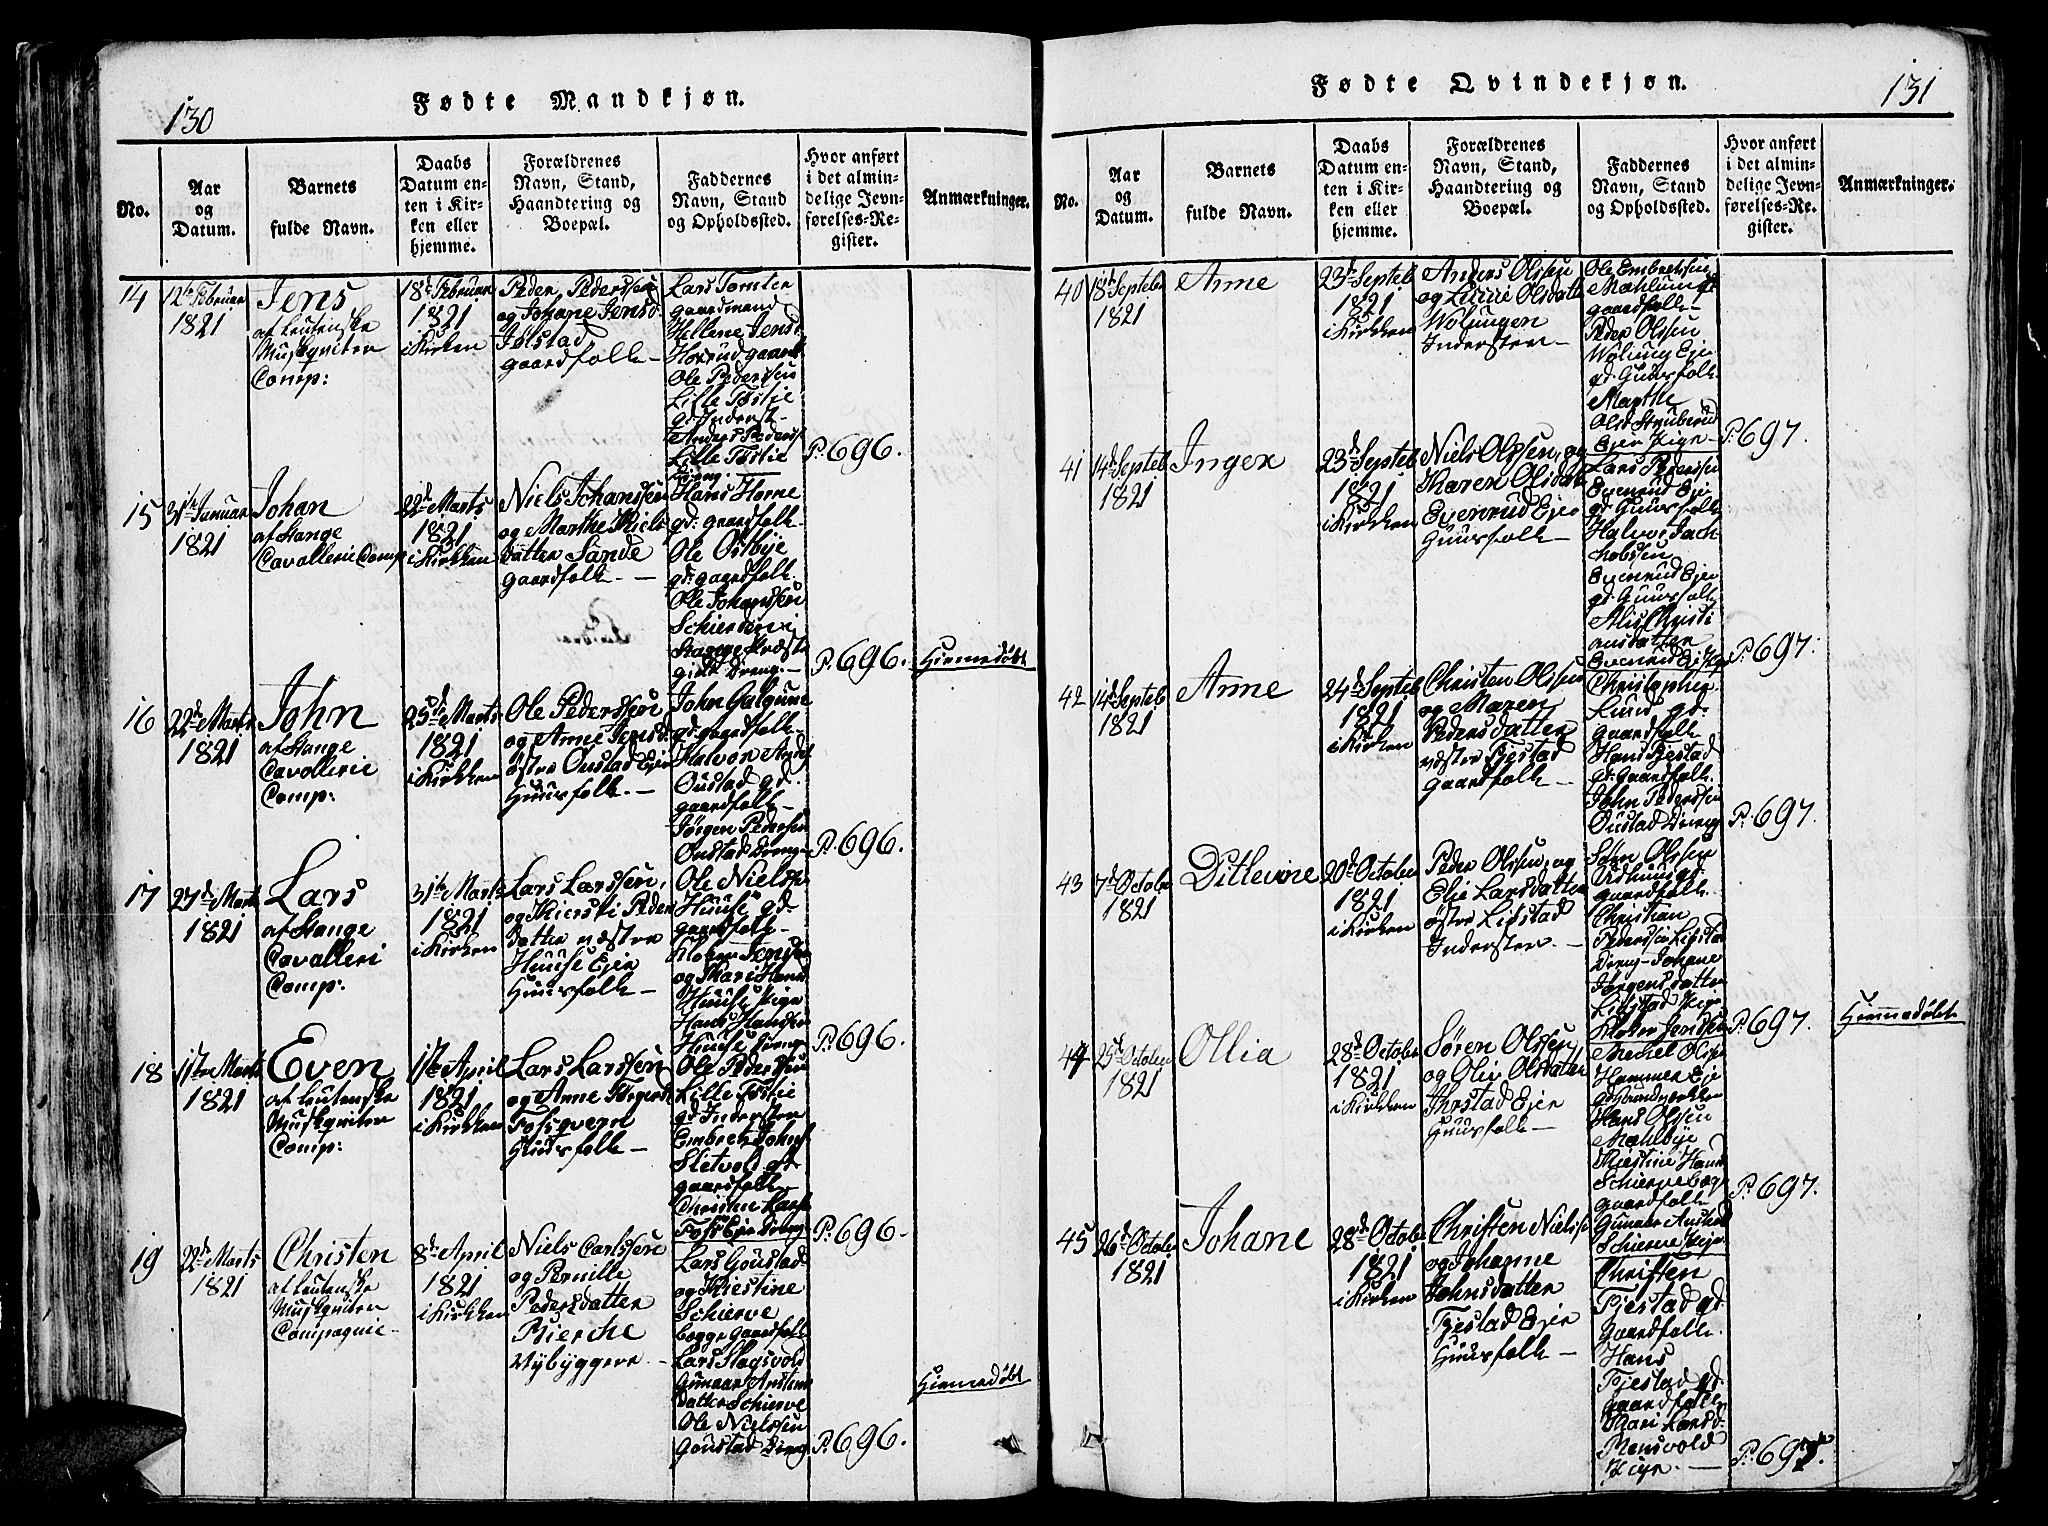 130
Fødte Mandkjøn.
No.
Aar
og
Datum.
Barnets
fulde Navn.
Daabs
Datum en-
ten i Kir-
ken eller
hjemme.
Forældrenes
Navn, Stand,
Haandtering og
Boepæl.
Faddernes
Navn, Stand
og Opholdssted.
Hvor anført
i det almin-
delige Jevn-
førelses-Re-
gister.
Anmærkninger.
14
12te Februar
1821
Jens
af Leutenske
Musqviter
Comp:
18de Februar
1821
i Kirken
Peder Pederssen
og Johane Jensd.
Jølstad
gaardfolk
Lars Tomter
gaardmand
Hellene Jensd
Horrud gaardk
Ole Pederssen
Lille Tøslie
gd. Inderst
Anders Peders
Lille Tøslie
P. 696.
15
31te Januar
1821
Johan
af Stange
Cavallerie Comp
22de Marts
1821
i Kirken
Niels Johanssen
og Marthe Niels
datter Sande
gaardfolk
Hans Horne
gd. gaardfolk
Ole Ostbye
gd. gaardfolk
Ole Johanssen
Stange Præste
gield Dreng
P. 696.
Hiemmedøbt
16
22de Marts
1821
John
af Stange
Cavallerie
Comp:
25de Marts
1821
i Kirken
Ole Pederssen
og Anne Jensd.
østre Oustad Eje
Huusfolk
John Galgum
gd. gaardfolk
Halvor
Oustad gd.
gaardfolk
Jørgen Pederssen
Oustad Dreng
P. 696.
17
27de Marts
1821
Lars
af Stange
Cavalleri
Comp:
31te Marts
1821
i Kirken
Lars Larssen,
og Kiersti Peders
datter næstre
Huuse Ejer
Huusfolk
Ole Nielsen
Huuse gd.
gaardfolk
og Kari Hans
Huuse Pige
Hans Hansen
Huuse Dreng
P. 696.
18
17te Marts
1821
Even
af Leutenske
Musqviter
Comp:
17te April
1821
i Kirken
Lars Larssen
og Anne
Fosqvern
Huusfolk
Ole Pederssen
Lille Tøslie
gd. Inderster
Embret Johns
Sletvold
gaardfolk
Christen Lars
Foss Eje Dreng
P. 696.
19
22de Marts
1821
Christen
af Leutenske
Musqviter
Compagnie
8de April
1821
i Kirken
Niels Carlssen
og Pernille
Pedersdatter
Kierche
Nybyggere
Lars Goustad
og Kiestine
Schierve
bogge gaardfolk
Lars Slagsvold
Gunnar Austens
datter Schierve
Ole Nielssen
Goustad Dreng
P. 696.
Hiemmedøbt
131
Fødte Qvindekjøn.
No.
Aar
og
Datum.
Barnets
fulde Navn.
Daabs
Datum en-
ten i Kir-
ken eller
hjemme.
Forældrenes
Navn, Stand,
Haandtering og
Boepæl.
Faddernes
Navn, Stand
og Opholdssted.
Hvor anført
i det almin-
delige Jevn-
førelses-Re-
gister.
Anmærkninger.
40
18de Septebr
1821
Anne
23de Septebr
1821
i Kirken
Anders Olssen
og Olsdatter
Wolungen
Inderster
Ole Embretssen
Mæhlum gd
gaardfolk
Peder Olssen
Wolung Eje
gd. Huusfolk
Marthe
Olsd Struberud
Ejer Pige
P. 697.
41
14de Septebr
1821
Inger
23de Septebr
1821
i Kirken
Niels Olssen, og
Karen Olsdatter
Evenrud Ejer
Huusfolk
Lars Pederssen
Evenrud Eje
gd. Huusfolk
Halvor Jach
hobssen
Evenrud Eje
gd. Huusfolk
Alis Christi
ansdatter
Evenrud Eje Pige
P. 697.
42
14de Septebr
1821
Anne
24de Septebr
1821
i Kirken
Christen Olssen
og Maren
Pedersdatter
næstre Fjestad
gaardfolk
Christopher
Lund gd.
gaardfolk
Hans Fjestad
gd. gaardfolk
John Pederssen
Oustad Dreng
P. 697.
43
7de October
1821
Ditlevine
20de October
1821
i Kirken
Peder Olssen, og
Elie Larsdatter
østre Lidstad
Inderster
Søren Olssen
gaardfolk
Christian
Pederssen Lidstad
Dreng Johane
Jørgensdatter
Lidstad Pige
P. 697.
Hiemmedøbt
44
25de October
1821
Ollia
28de October
1821
i Kirken
Søren Olssen
og Oliv Olsdatter
Thrstad Ejer
Huusfolk
Michel Olssen
Hammer Eje
Hans Olssen
Mæhlbye
Kiestine Hans
Schierve bogge
gaardfolk
Gunnar Austensd
Schierve Pige
P. 697.
45
26de October
1821
Johane
28de October
1821
i Kirken
Christen Nielssen
og Johanne
Johnsdatter
Fjestad Ejer
Huusfolk
Christen
Fjestad gd.
gaardfolk
Hans
Fjestad gd.
gaardfolk
Mari Larsd.
Monsvold
Pige
P. 697.